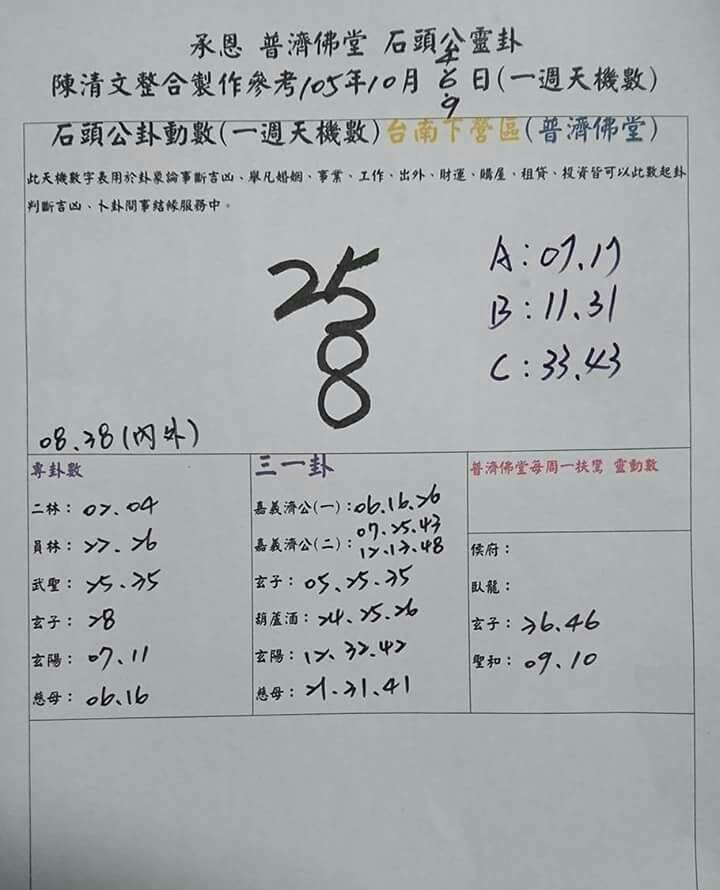 承恩 普濟佛堂 石頭公靈卦
陳清文整合製作參考105年10月 4 6 9 日(一週天機數)
石頭公卦動數(一週天機數)台南下營區(普濟佛堂)
此天機數字表用於卦象論事斷吉凶、舉凡婚姻、事業、工作、出外、財運、購屋、租貸、投資皆可以此數起卦
判斷吉凶、卜卦問事結緣服務中。
25
8
A:07.17
B:11.31
C:33.43
08.38(內外)
專卦數
二林: 02.04
員林: 27.26
武聖: 25.35
玄子: 28
玄陽: 07.11
慈母: 06.16
三一卦
嘉義濟公(一):06.16.26
嘉義濟公(二): 07.25.43
12.13.48
玄子: 05.25.35
葫蘆酒: 24.25.26
玄陽: 12.32.42
慈母: 21.31.41
普濟佛堂每周一扶鸞 靈動數
侯府:
臥龍:
玄子: 36.46
聖和: 09.10